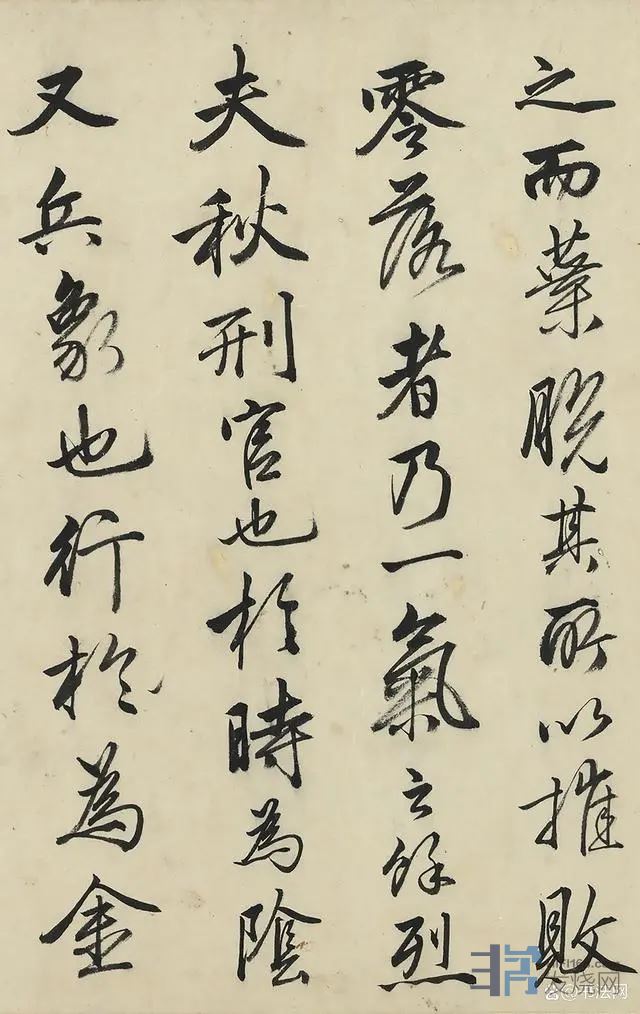 之而葉脫其所以摧敗
零落者乃一氣之餘烈
夫秋刑官也於時為陰
又兵象也行於為金